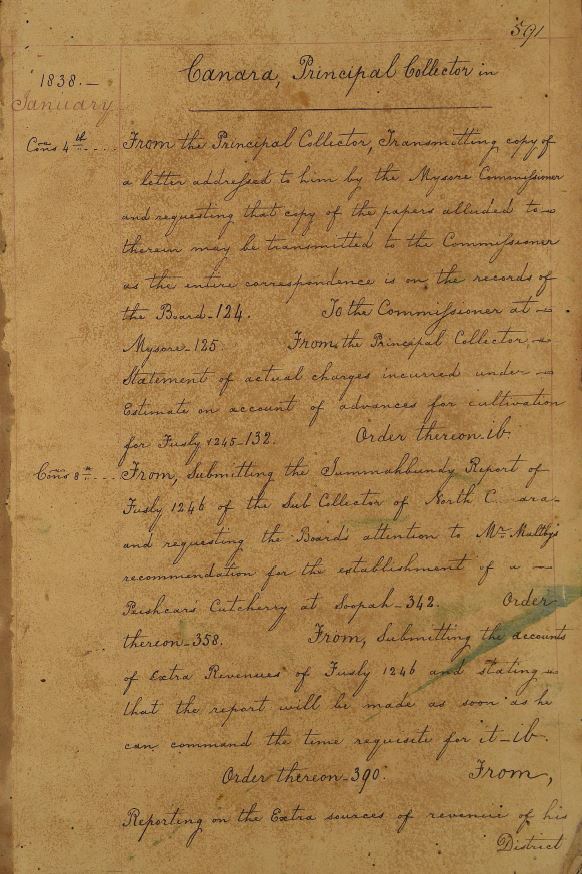 591
Canara, Principal Collector in
1838.—
January
Cons 4th .... From the Principal Collector, Transmitting copy of
a letter addressed to him by the Mysore Commissioner
and requesting that copy of the papers alluded to —
therein may be transmitted to the Commissioner
as the entire correspondence is on the records of
the Board - 124. To the Commissioner at —
Mysore - 125. From the Principal Collector, —
Statement of actual charges incurred under —
Estimate on account of advances for cultivation
for Fusly 1245 - 132. Order thereon ib.
Cons 8th .... From, Submitting the Jummabundy Report of
Fusly 1246 of the Sub Collector of North C ara-
and requesting the Board's attention to Mr. Maltby's
recommendation for the establishment of a —
Peishcar's Cutcherry at Soopah - 342. Order
thereon - 358. From, Submitting the accounts
of Extra Revenues of Fusly 1246 and stating —
that the report will be made as soon as he
can command the time requisite for it - ib.
Order thereon - 390. From,
Reporting on the Extra sources of revenue of his
District